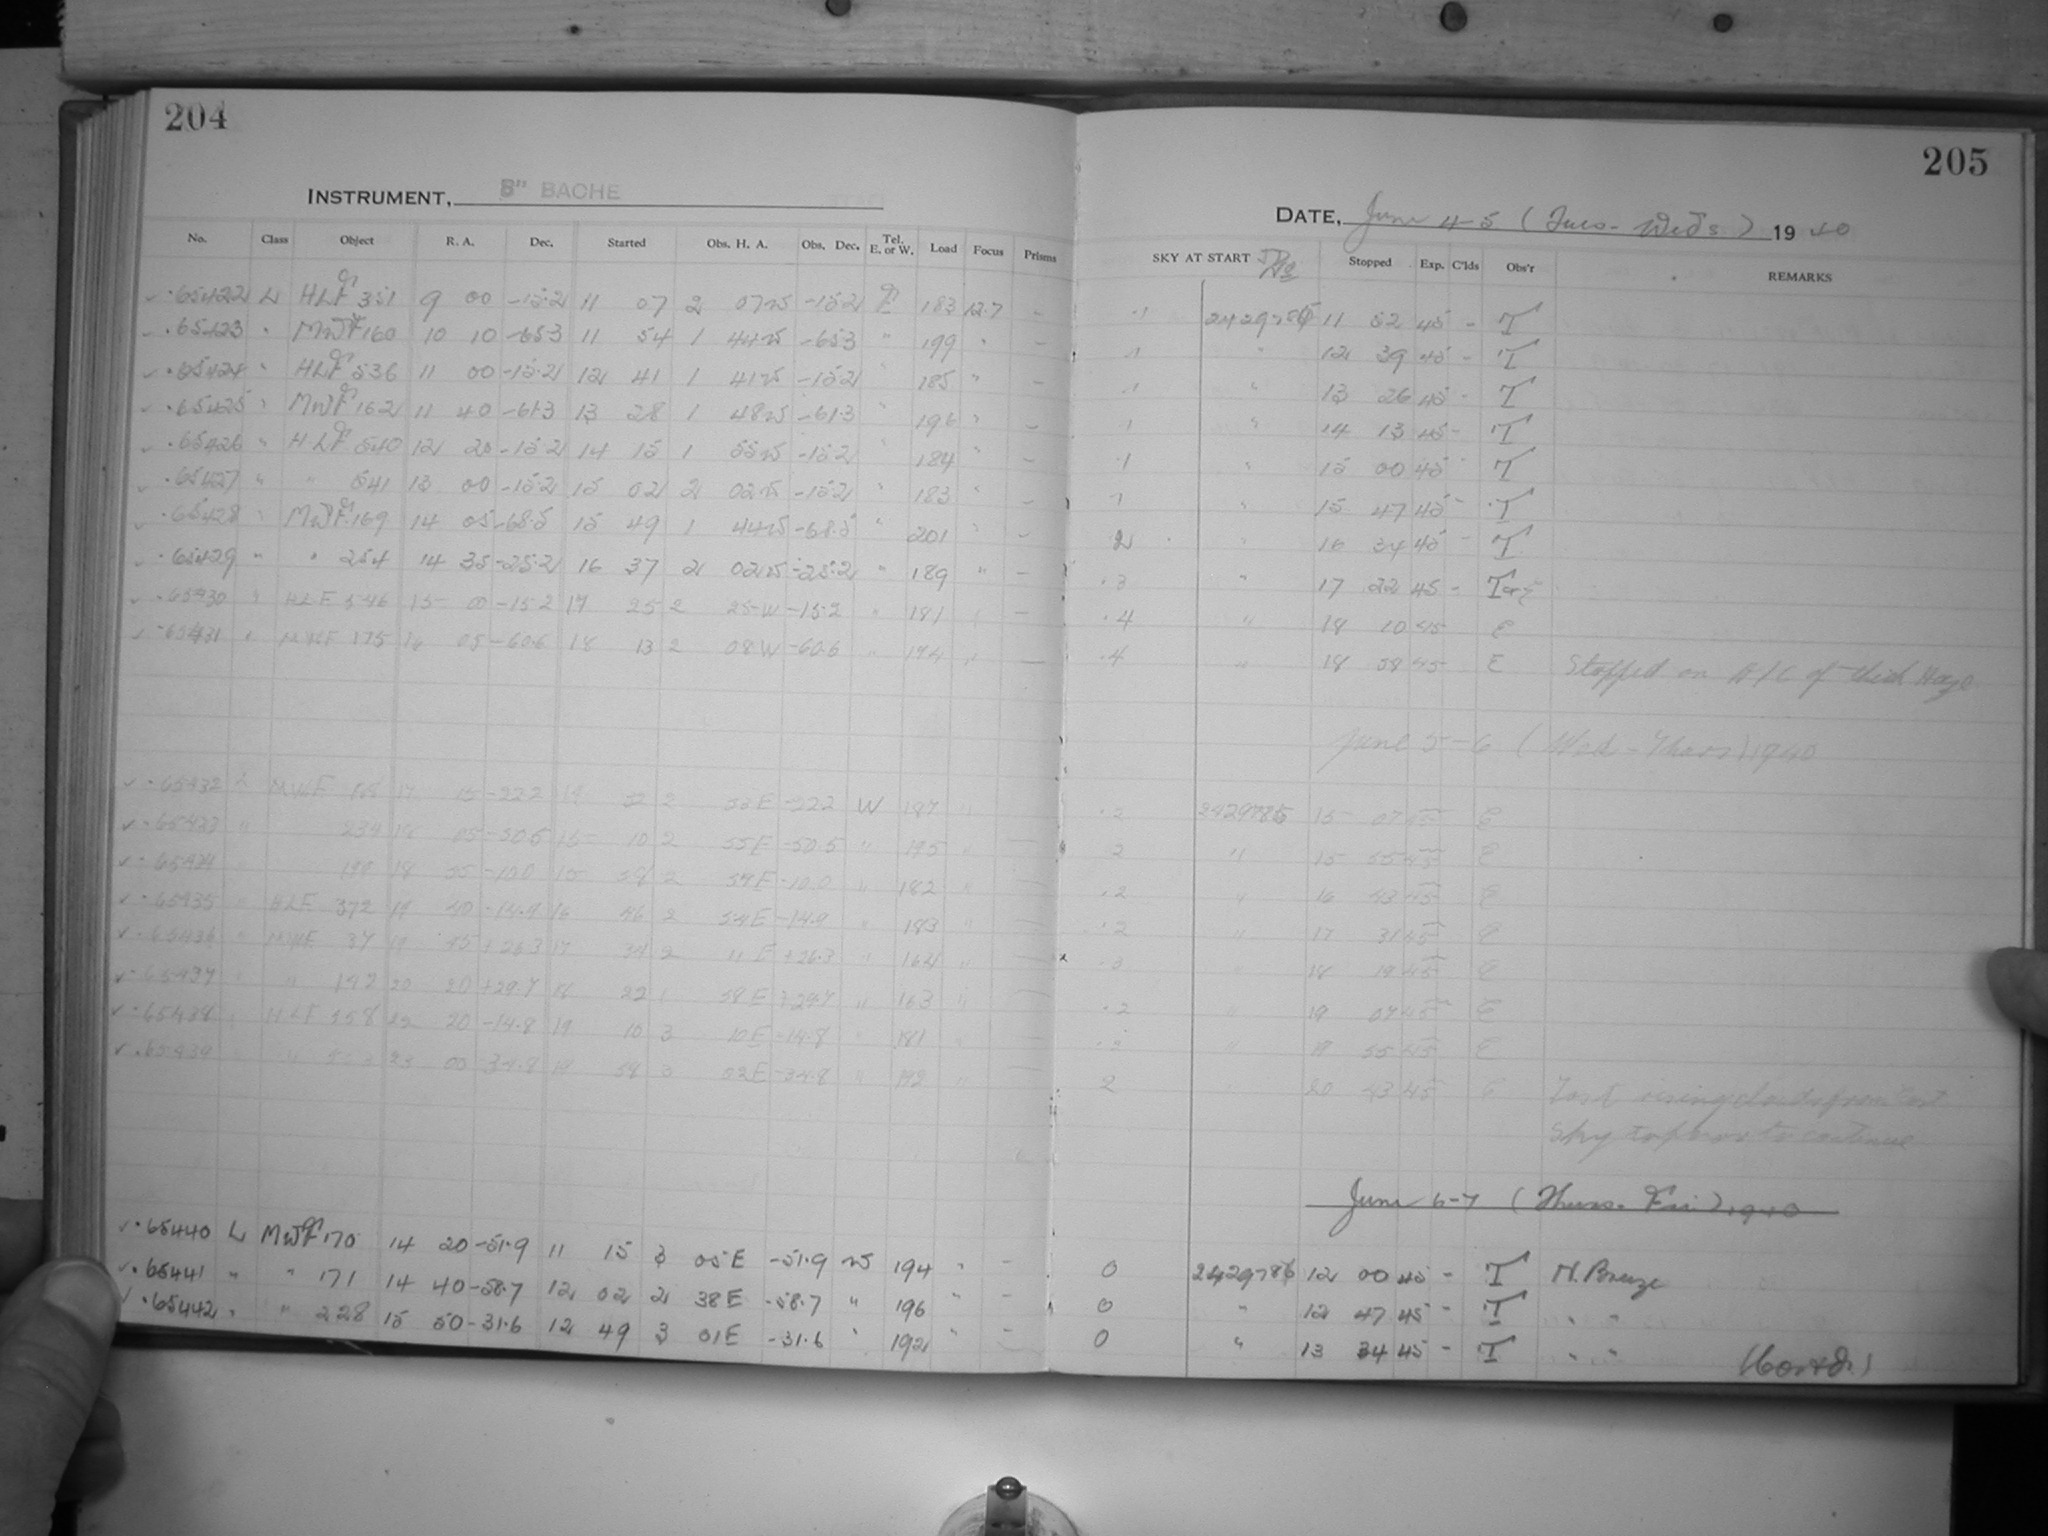 204
INSTRUMENT, 8" BACHE
No. Class Object R. A. Dec. Started Obs. H. A. Obs. Dec. Tel. E. or W. Load Focus Prisms
65422 L HLF 351 9 00 -15.2 11 07 2 07W -15.2 E 183 12.7 -
65423 " MWF 160 10 10 -65.3 11 54 1 44W -65.3 " 199 " -
65424 " HLF 536 11 00 -15.2 12 41 1 41W -15.2 " 185 " -
65425 " MWF 162 11 40 -61.3 13 28 1 48W -61.3 " 196 " -
65426 " HLF 540 12 20 -15.2 14 15 1 55W -15.2 " 184 " -
65427 " " 541 13 00 -15.2 15 02 2 02W -15.2 " 183 " -
65428 " MWF 169 14 05 -68.5 15 49 1 44W -68.5 " 201 " -
65429 " " 254 14 35 -25.2 16 37 2 02W -25.2 " 189 " -
65430 " HLF 546 15 00 -15.2 17 25 2 25W -15.2 " 181 " -
65431 " MWF 175 16 05 -60.6 18 13 2 08W -60.6 " 194 " -
65432 L MWF 17 15 -22.2 14 22 2 53E -22.2 W 187 "
65433 " 234 18 05 -50.5 15 10 2 55E -50.5 " 195 "
65434 " 18 55 -10.0 15 58 2 57E -10.0 " 182 "
65435 " HLF 372 19 40 -14.9 16 46 2 54E -14.9 " 183 "
65436 " MWF 87 19 45 +26.3 17 34 2 11E +26.3 " 164 "
65437 " " 142 20 20 +29.7 18 22 1 58E +29.7 " 163 "
65438 " HLF 558 22 20 -14.8 19 10 3 10E -14.8 " 181 "
65439 " " 23 00 -34.8 19 58 3 02E -34.8 " 192 "
65440 L MWF 170 14 20 -51.9 11 15 3 05E -51.9 W 194 " -
65441 " " 171 14 40 -58.7 12 02 2 38E -58.7 " 196 " -
65442 " " 228 15 50 -31.6 12 49 3 01E -31.6 " 192 " -
205
DATE, June 4-5 (Tues - Weds) 1940
SKY AT START Stopped Exp. C'lds Obs'r REMARKS
.1 2429784 11 52 45 - T
.1 " 12 39 45 - T
.1 " 13 26 45 - T
.1 " 14 13 45 - T
.1 " 15 00 45 - T
.1 " 15 47 45 - T
.2 " 16 34 45 - T
.3 " 17 22 45 - T or E
.4 " 18 10 45 E
.4 " 18 58 45 E Stopped on A/C of thick Haze
June 5-6 (Wed - Thurs) 1940
.2 2429785 15 07 45 E
.2 " 15 55 45 E
.2 " 16 43 45 E
.2 " 17 31 45 E
.3 " 18 19 45 E
.2 " 19 07 45 E
.2 " 19 55 45 E
.2 " 20 43 45 E Fast rising clouds from East
Sky to poor to continue
June 6-7 (Thurs - Fri) 1940
0 2429786 12 00 45 - T N. Breeze
0 " 12 47 45 - T " "
0 " 13 34 45 - T " "
(Contd.)